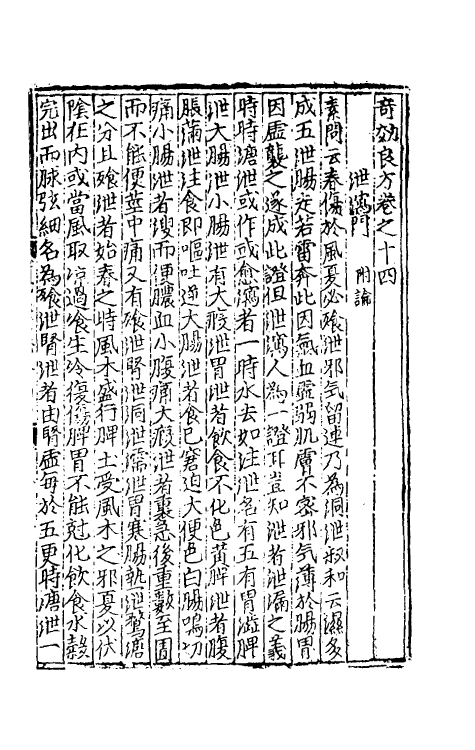 奇効良方卷之十四
泄瀉門 附論
素問云春傷於風夏必飱泄邪氣留連乃為洞泄叔和云濕多
成五泄腸走若雷奔此因氣血虛弱肌膚不密邪氣薄於腸胃
因虛襲之遂成此證但泄瀉人為一證耳豈知泄者泄漏之義
時時溏泄或作或愈瀉者一時水去如注泄名有五有胃泄脾
泄大腸泄小腸泄有大瘕泄胃泄者飲食不化色黃脾泄者腹
脹滿泄注食即嘔吐逆大腸泄者食已窘迫大便色白腸鳴切
痛小腸泄者溲而便膿血小腹痛大瘕泄者裏急後重數至圊
而不能便莖中痛又有飱泄腎泄洞泄濡泄胃寒腸熱泄鶩溏
之分且飱泄者始春之時風木盛行脾土受風木之邪夏以伏
陰在内或當風取涼過飧生冷復傷脾胃不能尅化飲食水穀
完出而脉弦細名為飱泄腎泄者由腎虛每於五更時溏泄一